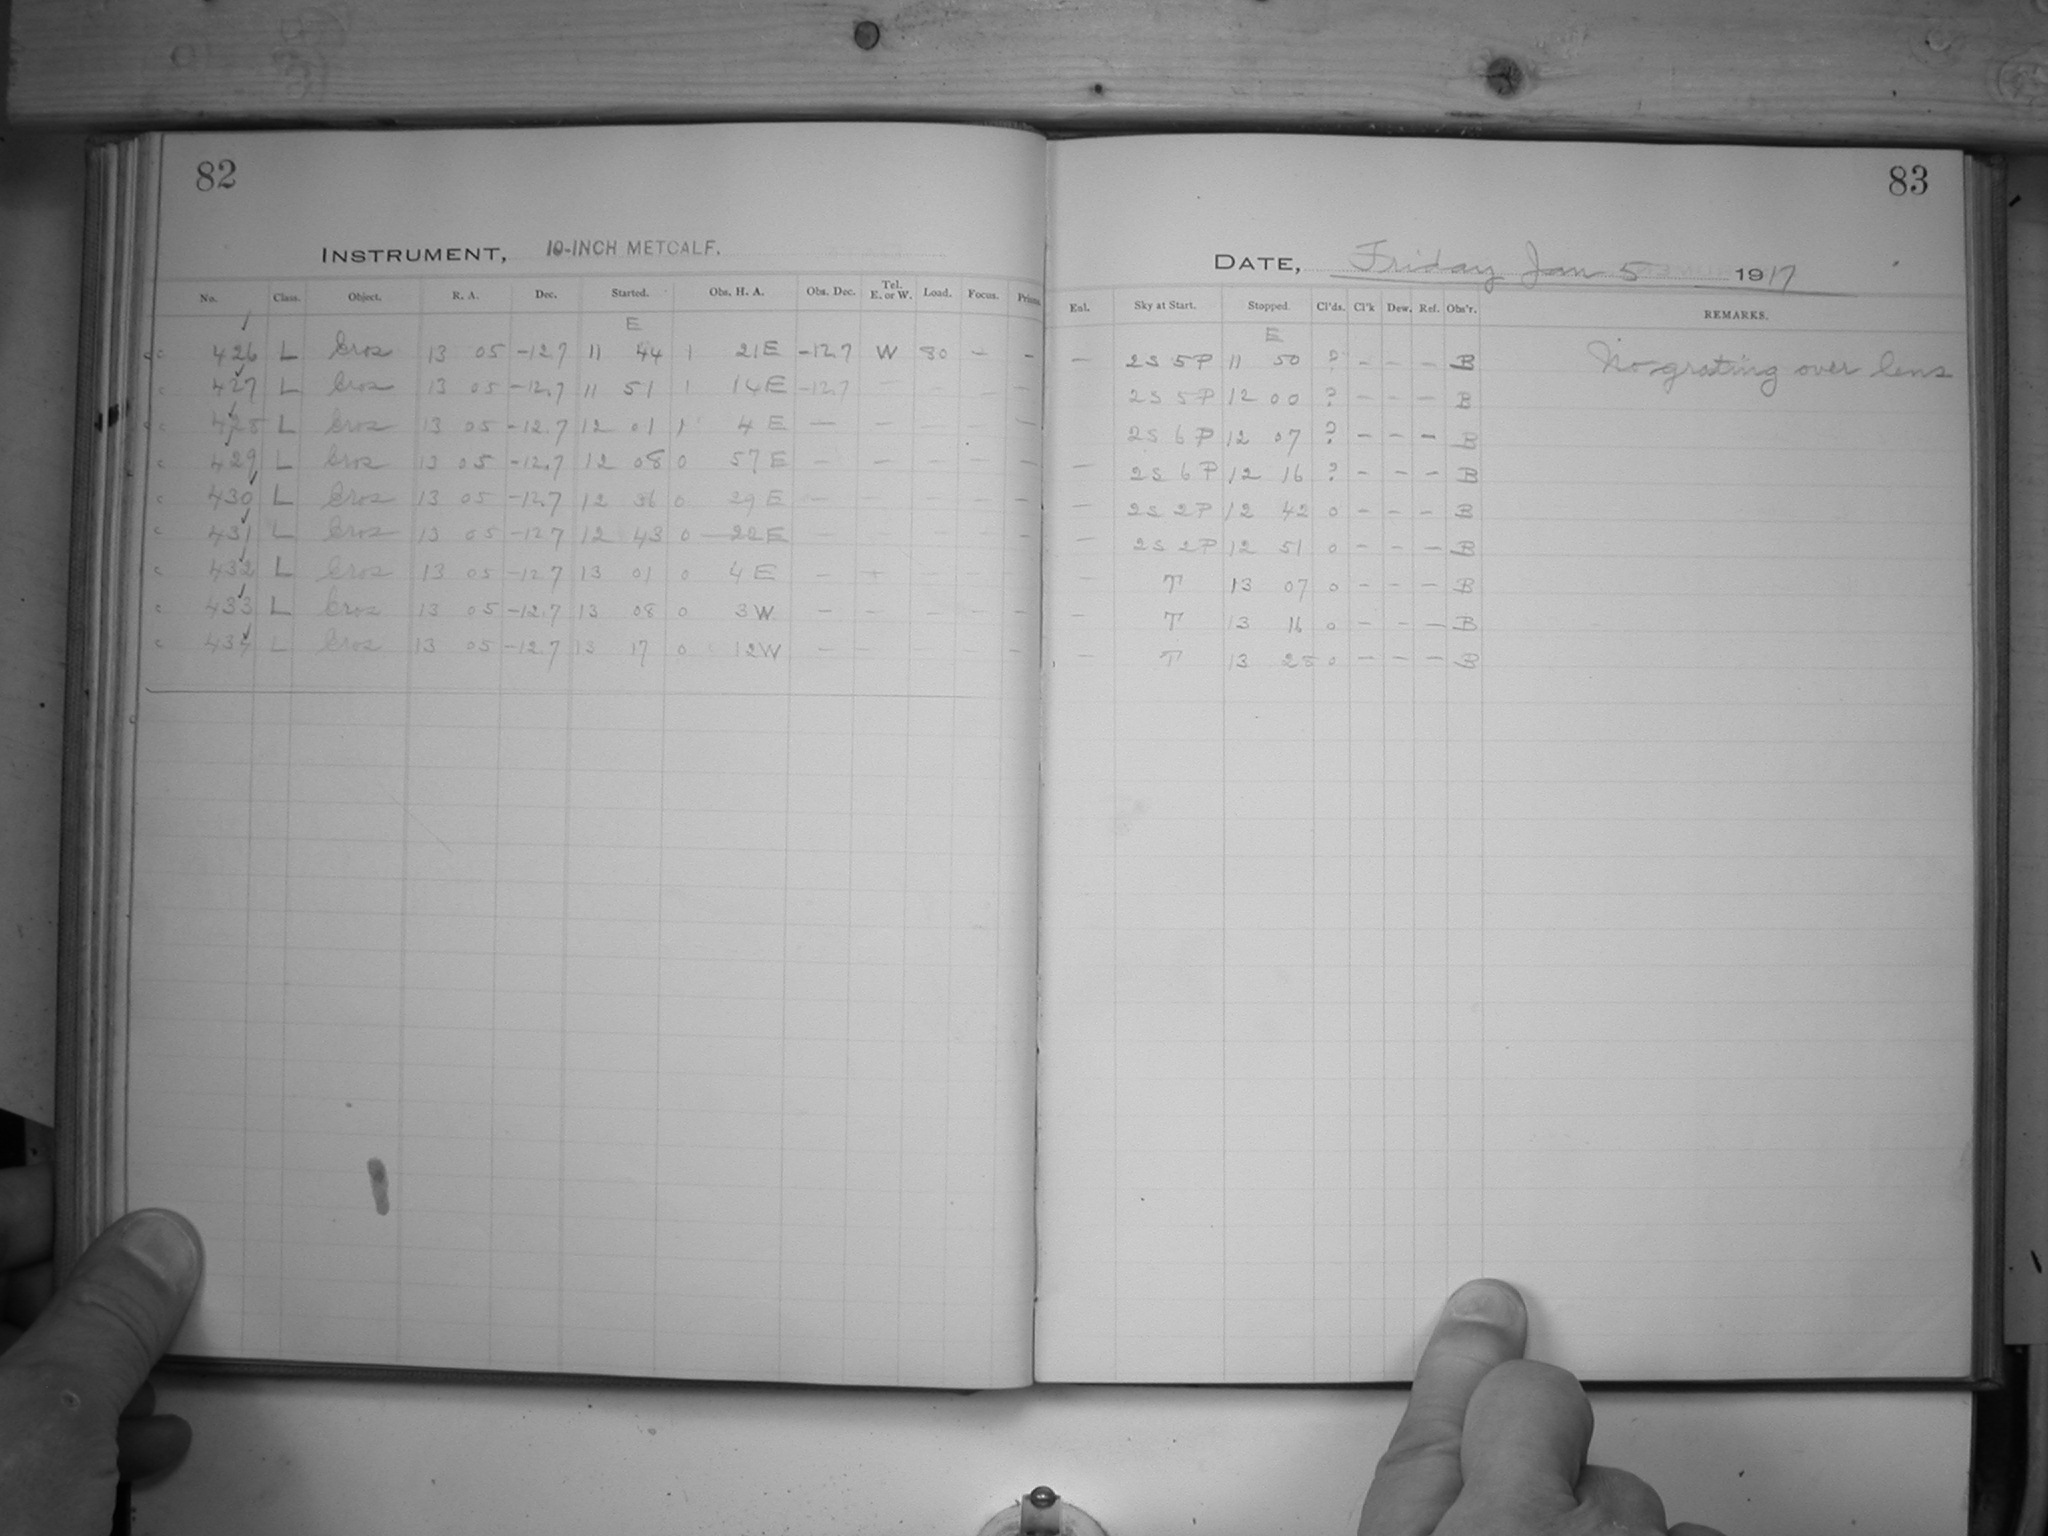 82
INSTRUMENT, 10-INCH METCALF.
No. Class. Object. R. A. Dec. Started. Obs. H. A. Obs. Dec. Tel. E. or W. Load. Focus. Prism.
E
c 426 L Eros 13 05 -12.7 11 44 1 21 E -12.7 W 80 - -
c 427 L Eros 13 05 -12.7 11 51 1 14 E -12.7 - - - -
c 428 L Eros 13 05 -12.7 12 01 1 4 E - - - - -
c 429 L Eros 13 05 -12.7 12 08 0 57 E - - - - -
c 430 L Eros 13 05 -12.7 12 36 0 29 E - - - - -
c 431 L Eros 13 05 -12.7 12 43 0 22 E - - - - -
c 432 L Eros 13 05 -12.7 13 01 0 4 E - - - - -
c 433 L Eros 13 05 -12.7 13 08 0 3 W - - - - -
c 434 L Eros 13 05 -12.7 13 17 0 12 W - - -
83
DATE, Friday Jan 5 1917
Enl. Sky at Start. Stopped. Cl'ds. Cl'k Dew. Ref. Obs'r. REMARKS.
E
- 2S 5P 11 50 ? - - - B No grating over lens
2S 5P 12 00 ? - - - B
2S 6P 12 07 ? - - - B
- 2S 6P 12 16 ? - - - B
- 2S 2P 12 42 0 - - - B
- 2S 2P 12 51 0 - - - B
- T 13 07 0 - - - B
- T 13 16 0 - - - B
- T 13 25 0 - - - B